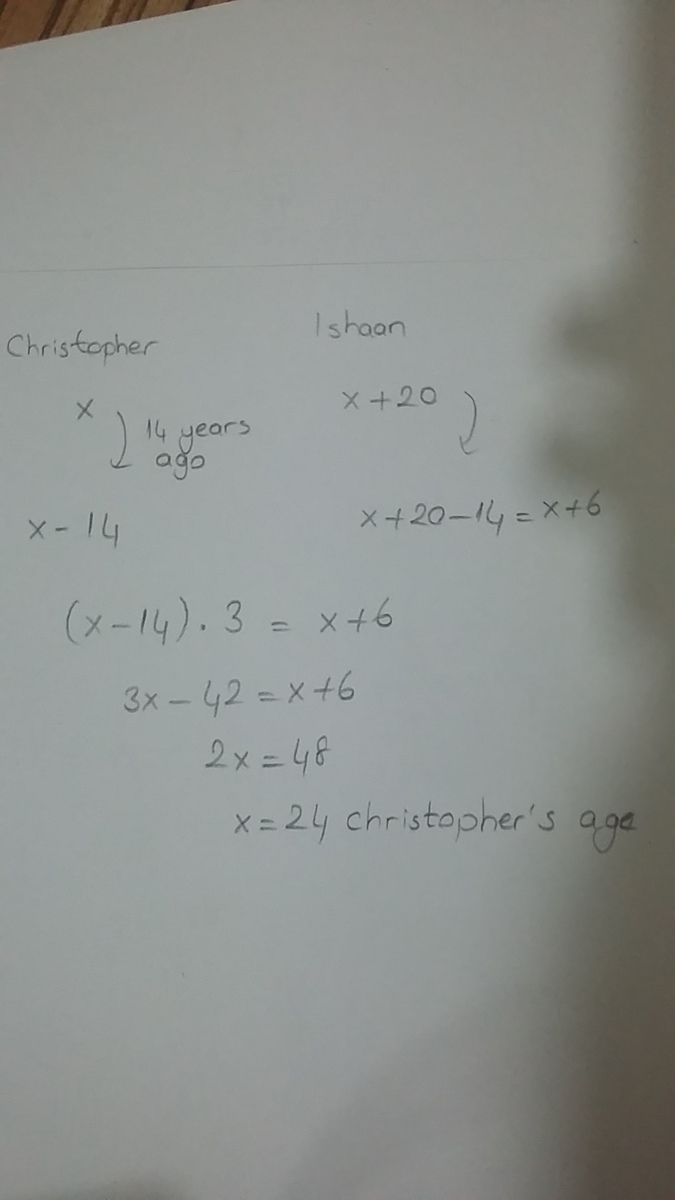 Christopher
Ishaan
x
x+20
14 years
ago
x-14
x+20-14=x+6
(x-14).3 = x+6
3x-42=x+6
2x=48
x=24 christopher's age